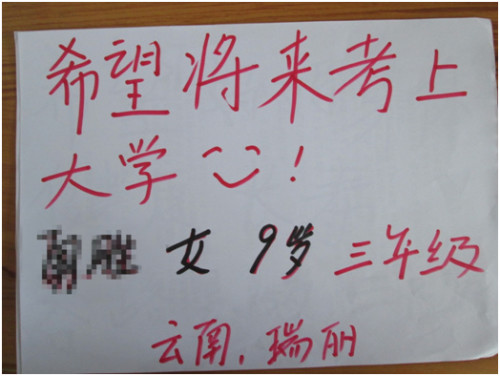 希望将来考上
大学!
女 9岁 三年级
云南.瑞丽